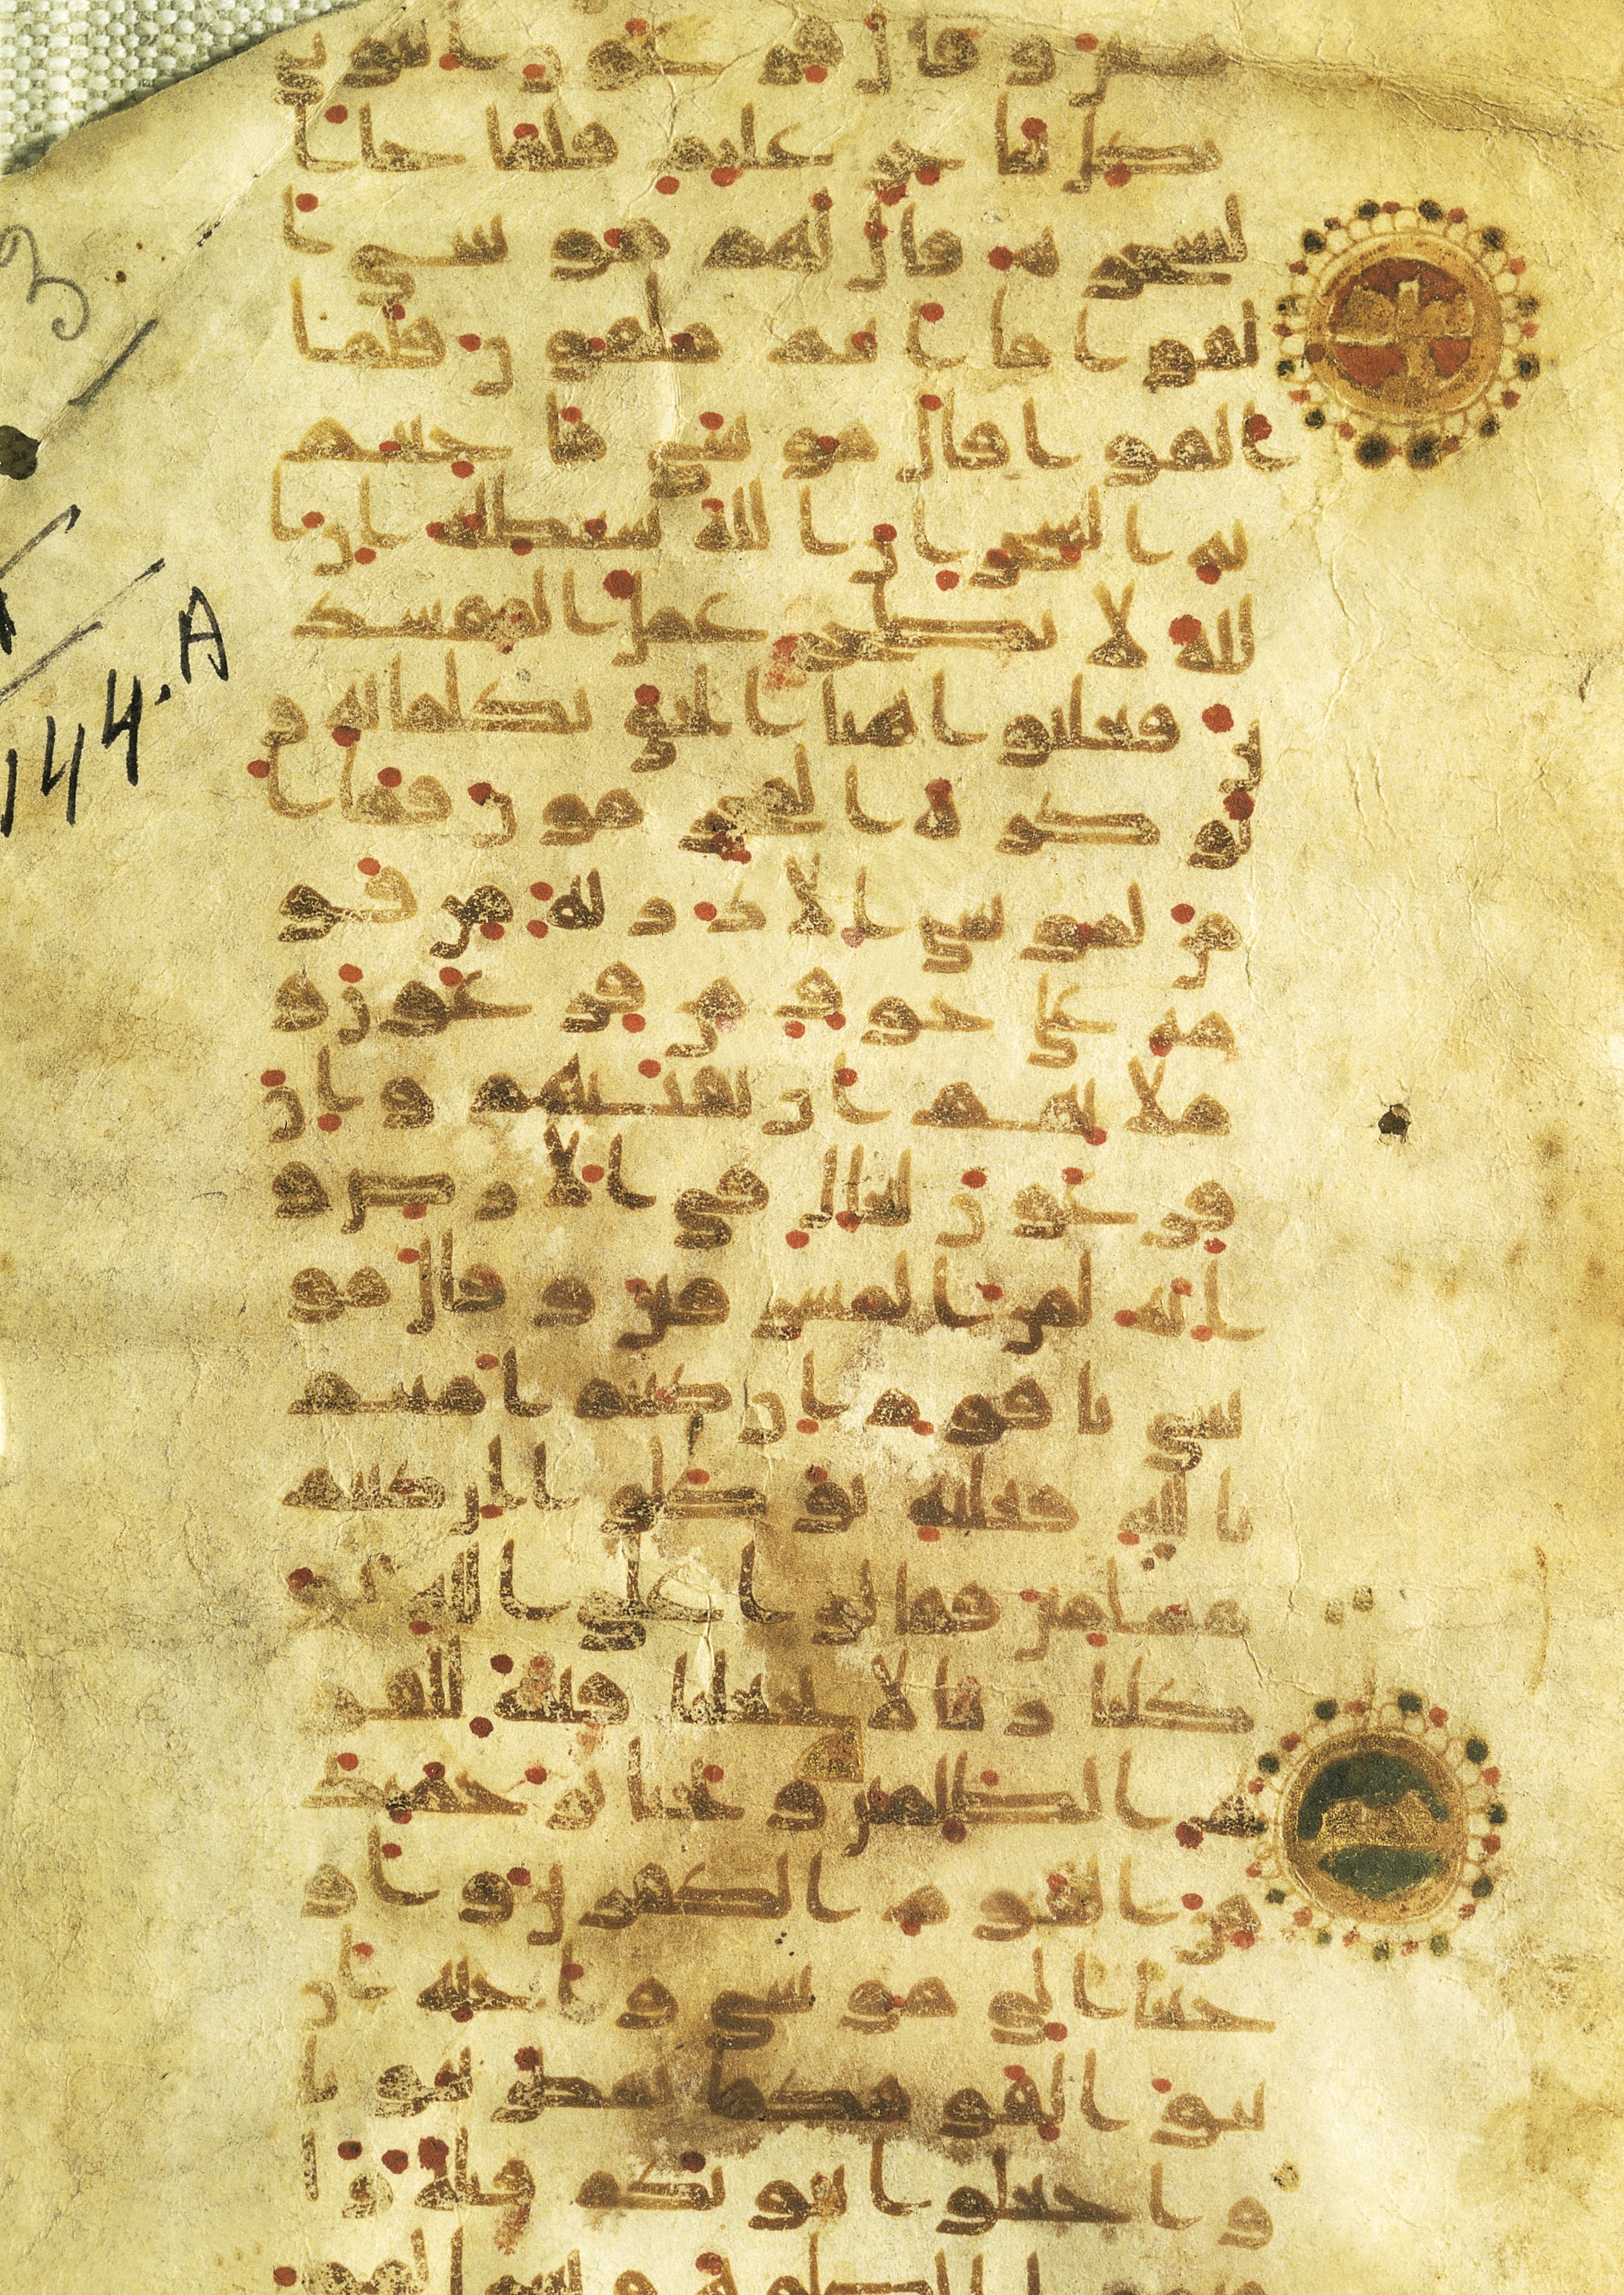 منين وقال فرعون ائتوني
بكل سحر عليم فلما جا ا
لسحرة قال لهم موسى ا
لقوا ما انتم ملقون فلما
القوا قال موسى ما جئتم
به السحر ان الله سيبطله ان ا
لله لا يصلح عمل المفسد
ين ويحق الله الحق بكلماته و
لو كره المجرمون فما ا
من لموسى الا ذرية من قو
مه على خوف من فرعون و
ملايهم ان يفتنهم وان
فرعون لعال في الارض و
انه لمن المسرفين وقال مو
سى يا قوم ان كنتم امنتم
بالله فعليه توكلوا ان كنتم
مسلمين فقالوا على الله تو
كلنا ربنا لا تجعلنا فتنة للقو
م الظلمين ونجنا برحمتك
من القوم الكفرين واو
حينا الى موسى واخيه ان
تبوا لقومكما بمصر بيوتا
واجعلوا بيوتكم قبلة وا
قيموا الصلوة وبشر المو
3
144.A